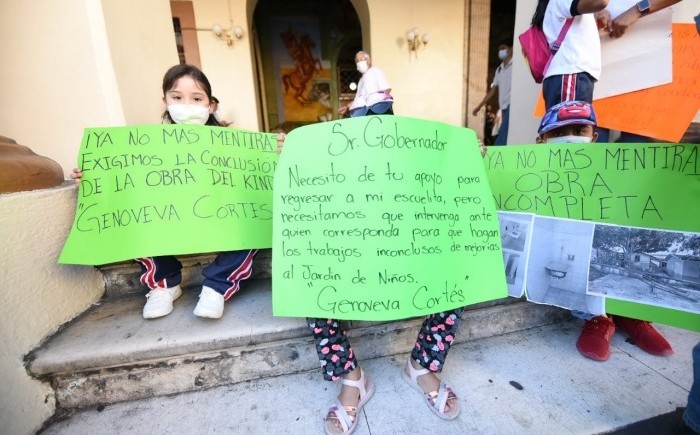 ¡YA NO MAS MENTIRAS
EXIGIMOS LA CONCLUSION
DE LA OBRA DEL KIND
"GENOVEVA CORTES"
Sr. Gobernador
Necesito de tu apoyo para
regresar a mi escuelita, pero
necesitamos que intervenga ante
quien corresponda para que hagan
los trabajos inconclusos de mejorías
al Jardin de Niños.
"Genoveva Cortés"
NO MAS MENTIRAS
OBRA
INCOMPLETA